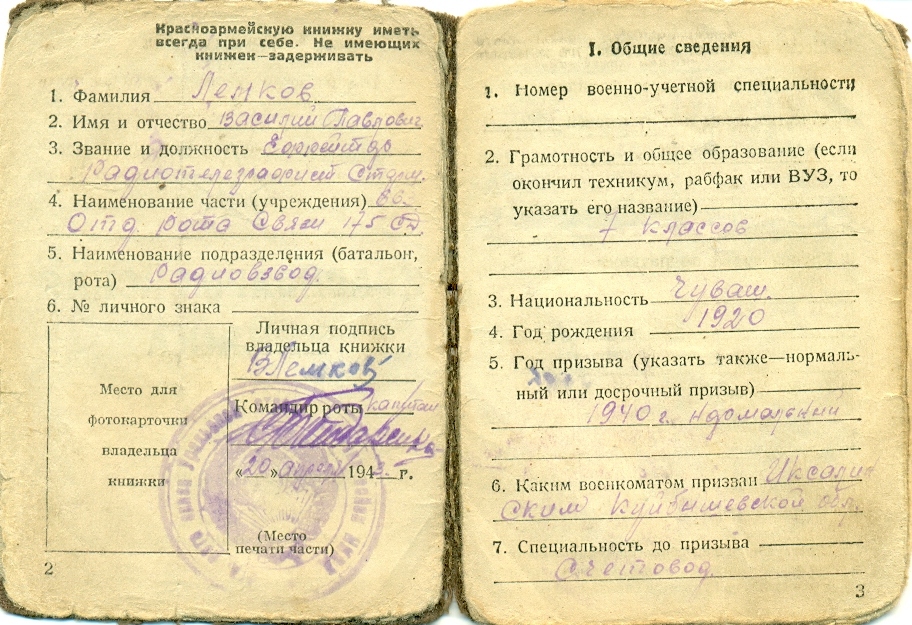 Красноармейскую книжку иметь
всегда при себе. Не имеющих
книжек—задерживать
1. Фамилия Лемков
2. Имя и отчество Василий Павлович
3. Звание и должность Ефрейтор
Радиотелеграфист Старш.
4. Наименование части (учреждения)
Отд. рота Связи 175 СД
5. Наименование подразделения (батальон,
рота) Радиовзвод.
6. № личного знака
Место для
фотокарточки
владельца
книжки
Личная подпись
владельца книжки
ВЛемков
Командир роты капитан
«20» апреля 1943 г.
(Место
печати части)
2
I. Общие сведения
1. Номер военно-учетной специальности
2. Грамотность и общее образование (если
окончил техникум, рабфак или ВУЗ, то
указать его название)
7 классов
3. Национальность Чуваш.
4. Год рождения 1920
5. Год призыва (указать также—нормаль-
ный или досрочный призыв)
1940 г. Ндомальнии
6. Каким военкоматом призван
Ским Куйбышевской обл.
7. Специальность до призыва
Счетовод
3